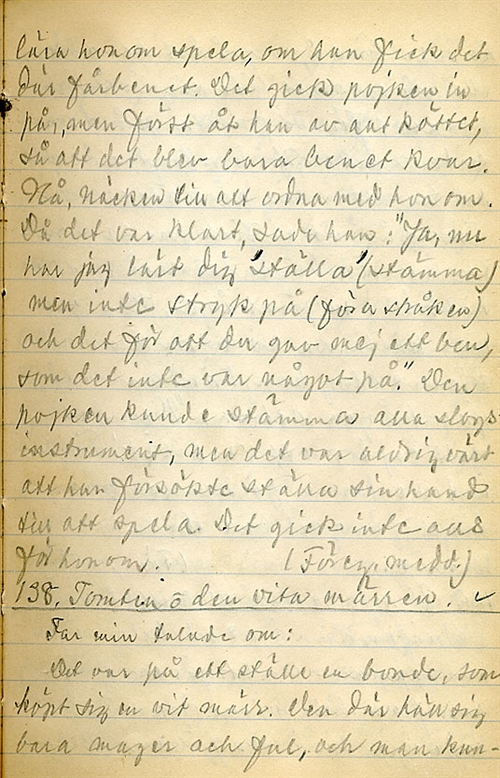 lära honom spela, om han fick det
där fårbenet. Det gick pojken in
på, men först åt han av allt köttet,
så att det blev bara benet kvar.
Nå, Näcken till att ordna med honom.
Då det var klart, sade han: "Ja, nu
har jag lärt dig 'ställa' (stämma)
men inte stryk på (föra stråken)
och det för att du gav mej ett ben,
som det inte var något på." Den
pojken kunde stämma alla slags
instrument, men det var aldrig värt
att han försökte ställa sin hand
till att spela. Det gick inte alls
för honom. (Föreg. medd.)
138. Tomten o den vita märren. ✓
Far min talade om:
Det var på ett ställe en bonde, som
köpt sig en vit märr. Den där höll sig
bara mager och ful, och man kun-